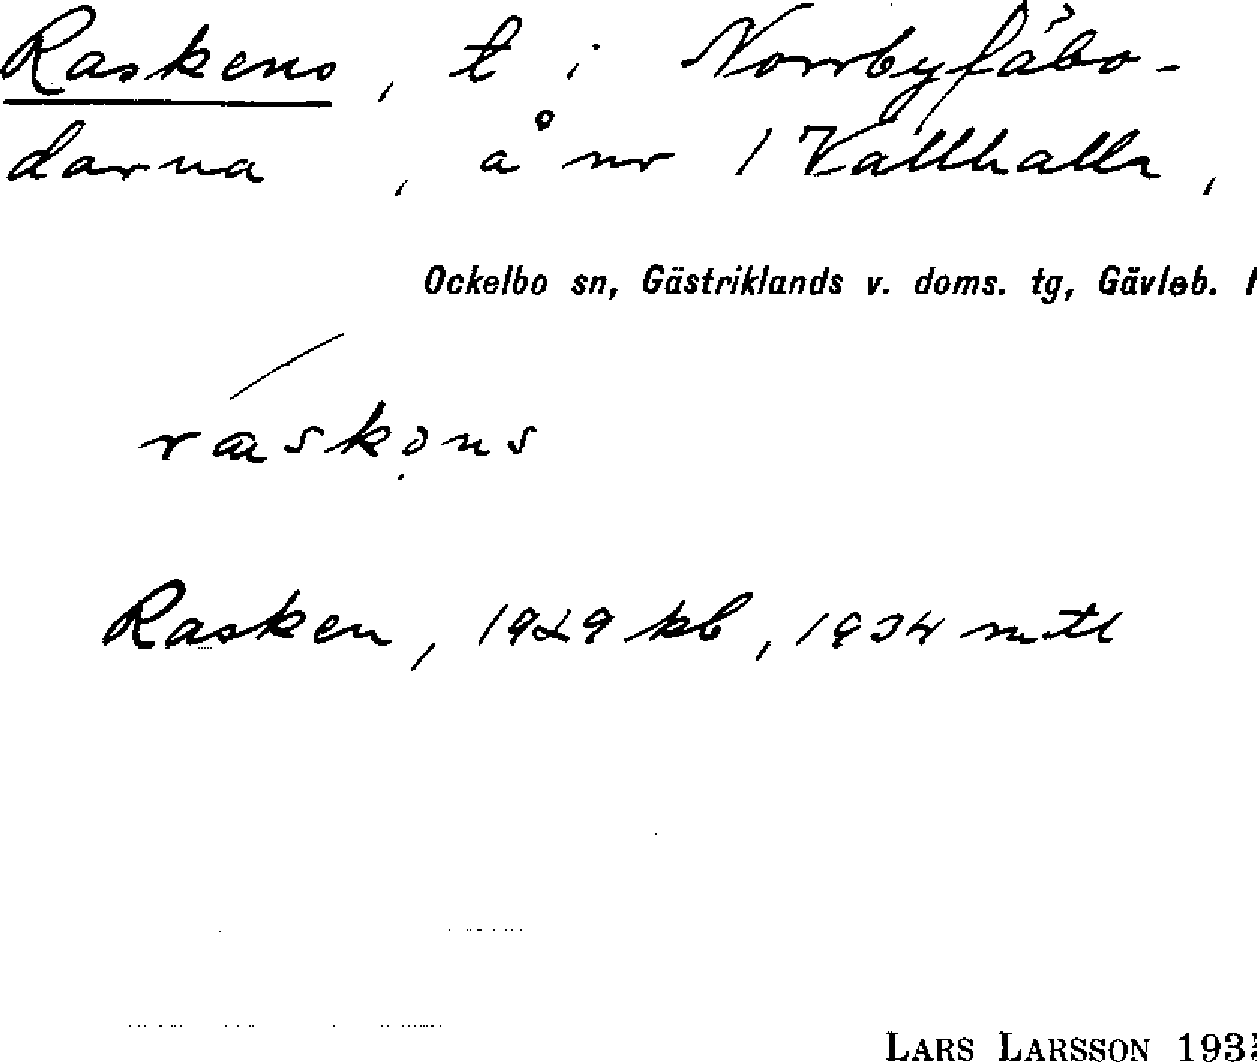 Raskens, t i Norrbyfäbo-
darna, å nr 1 Vallhalla,
Ockelbo sn, Gästriklands v. doms. tg, Gävleb. l
raskəns
Rasken, 1929 kb, 1934 mtl
LARS LARSSON 193